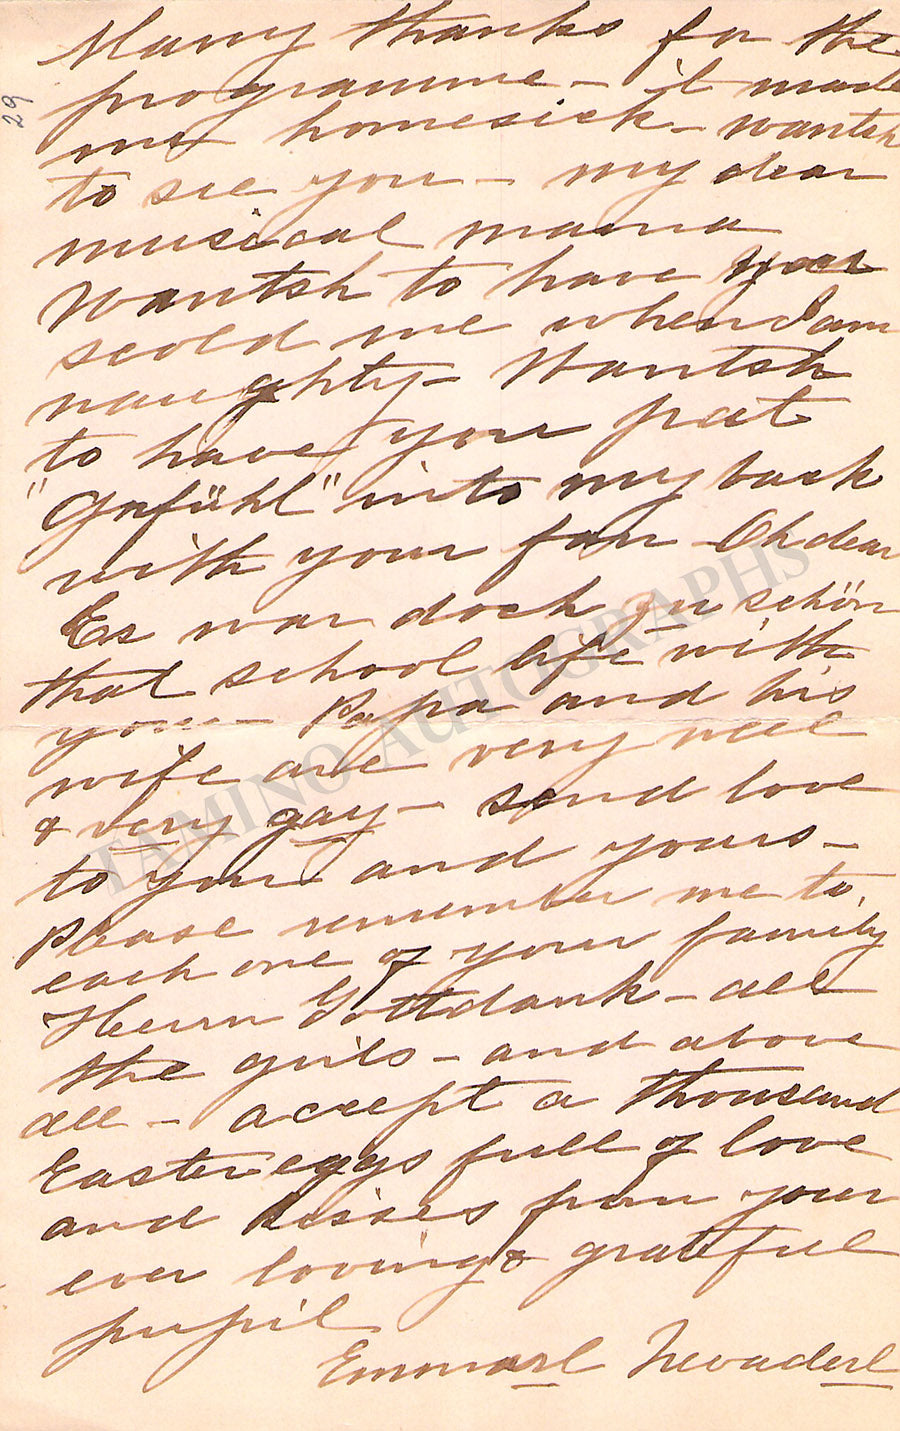 Many thanks for the
programme – it made
me homesick – wantsh
to see you – my dear
musical mama
Wantsh to have your
scold me when I am
naughty – Wantsh
to have you pat
"Gefühl" into my back
with your fan – Oh dear
Es war doch zu schön
that school life with
you – Papa and his
wife are very well
& very gay – send love
to you and yours –
Please remember me to
each one of your family
Herrn Gottdank – all
the girls – and above
all – accept a thousand
Easter eggs full of love
and kisses from your
ever loving & grateful
pupil
Emmarl Nevaderl
29
TAMINO AUTOGRAPHS